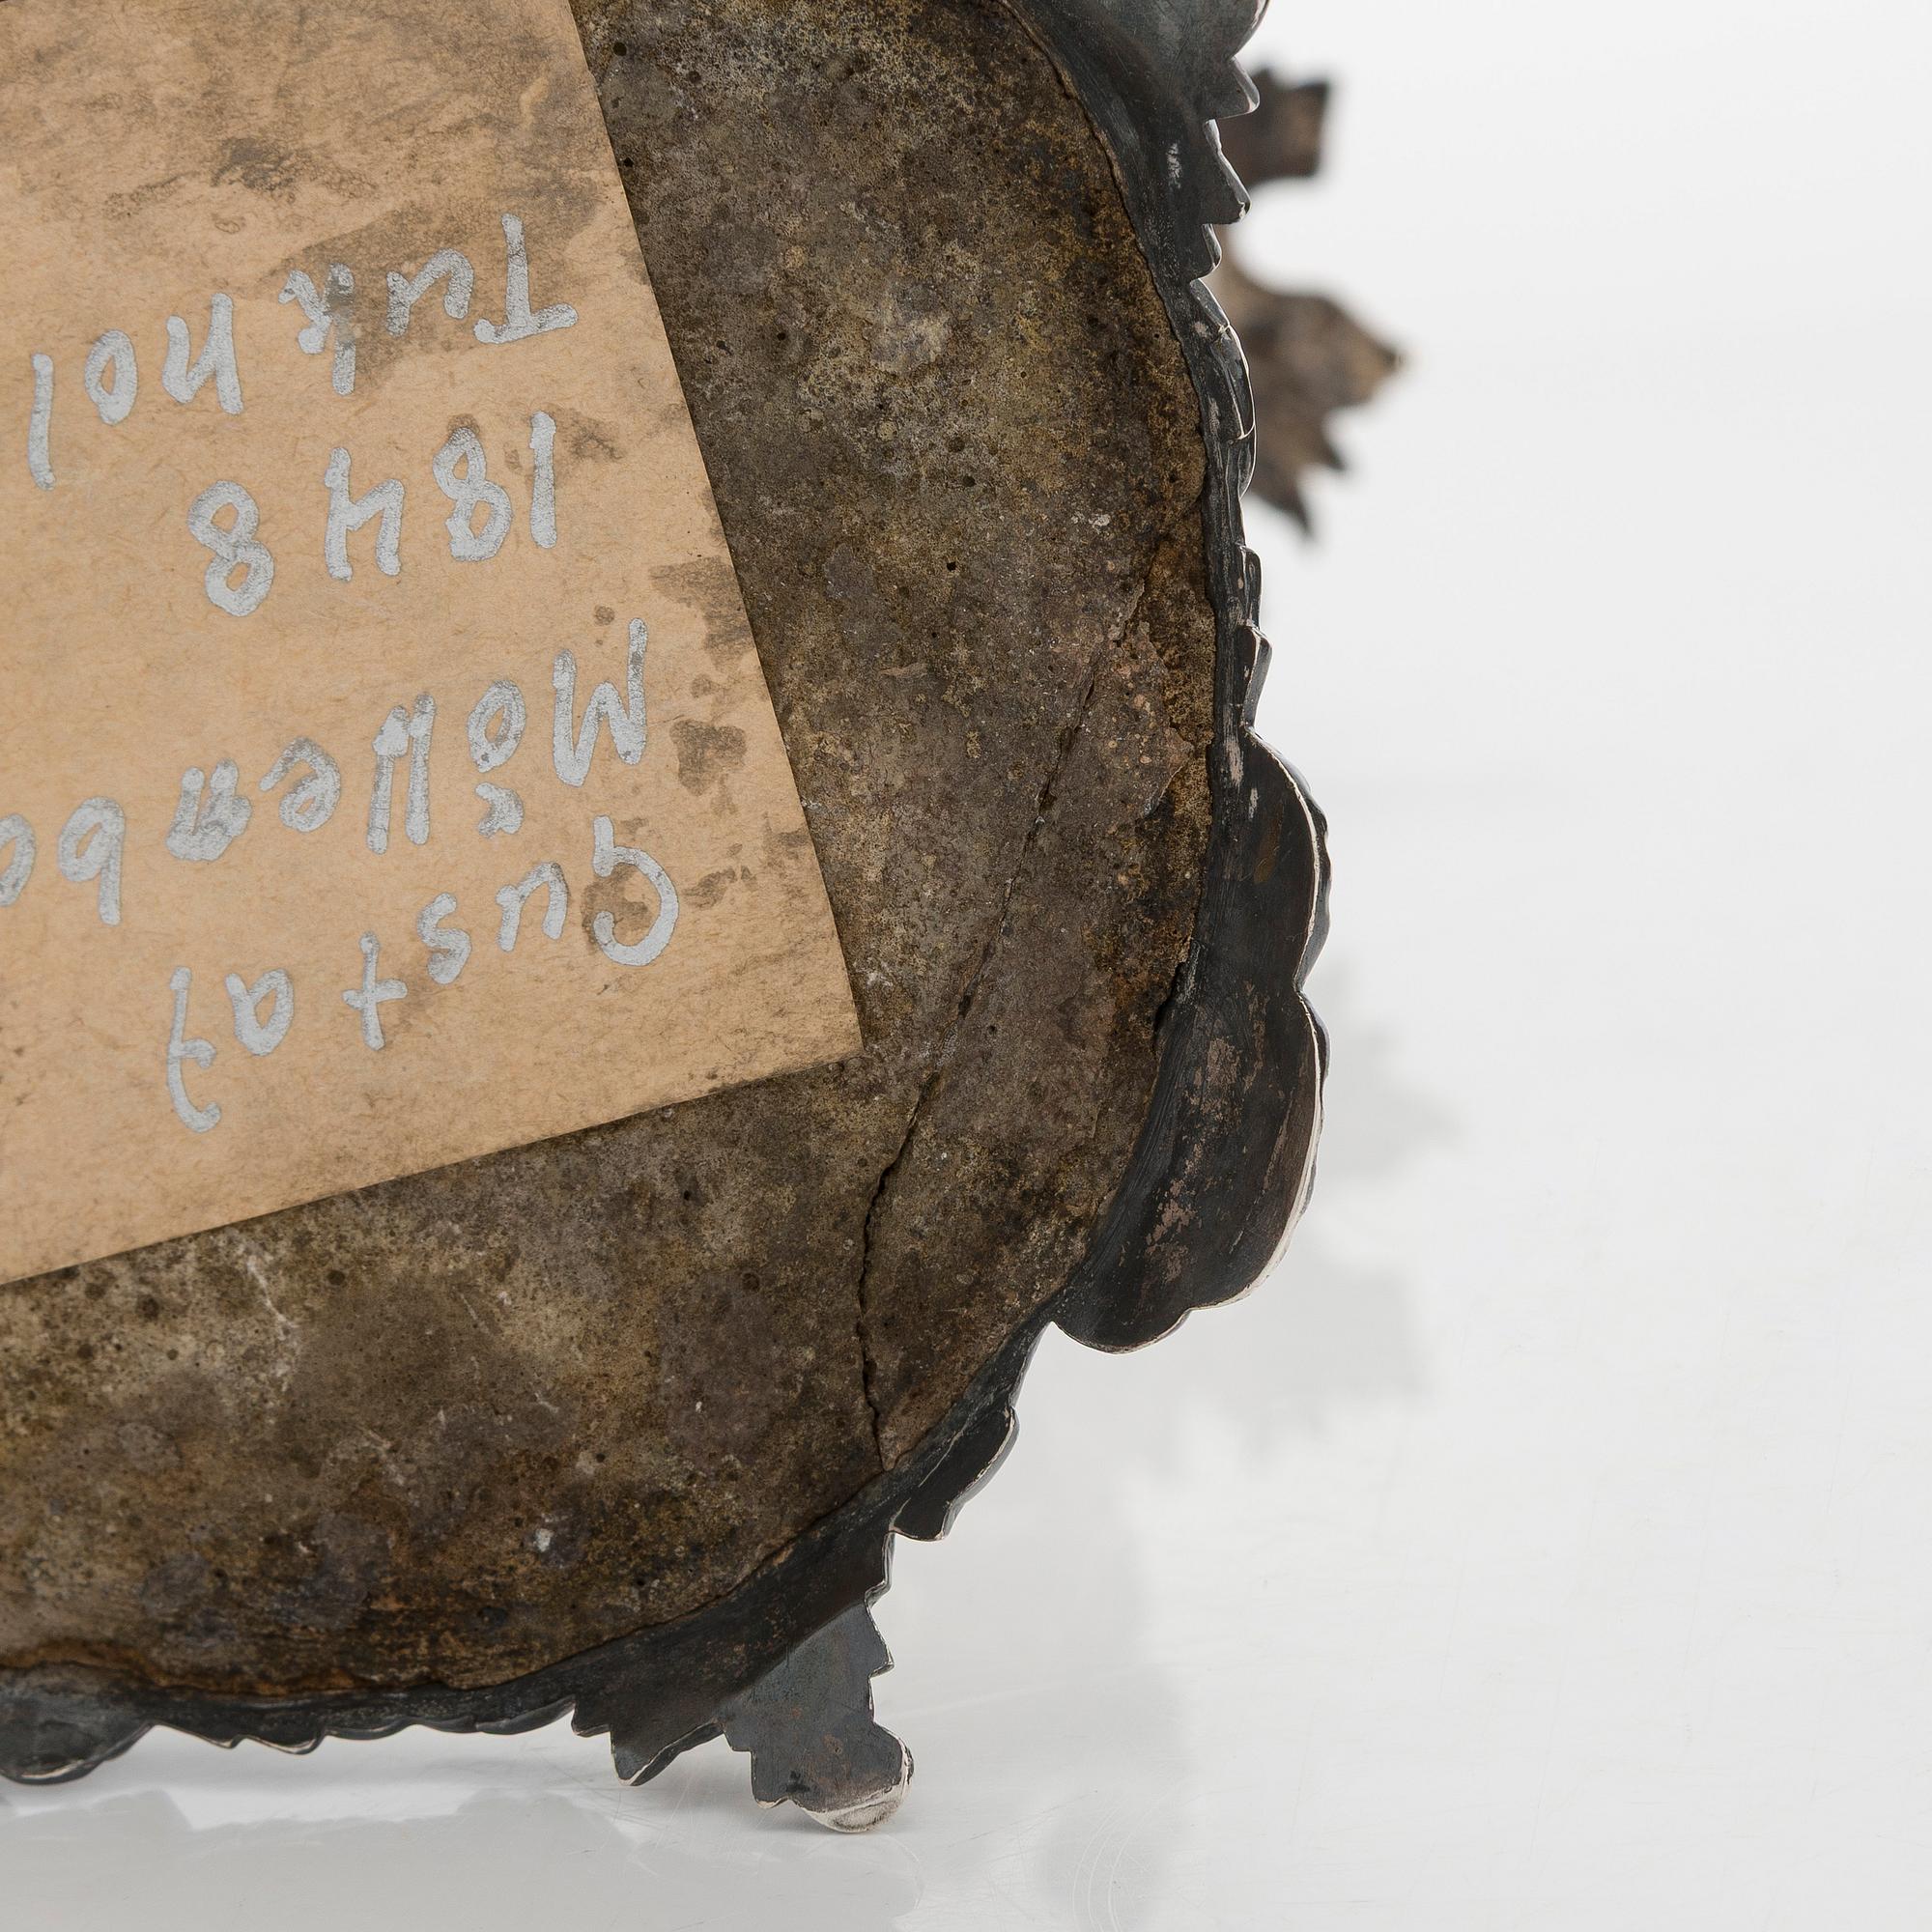 Gustaf
Möllenbo
1848
Tuk hol